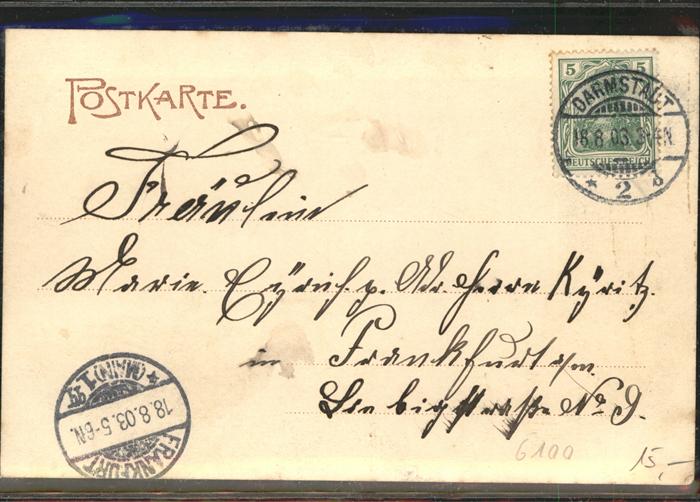 POSTKARTE.
5 5
DEUTSCHES REICH
DARMSTADT
18.8.03. 3-4N.
* 2 b
Fräulein
Marie. p. Adr Herrn Kyritz.
in Frankfurt a/m.
Liebigstraße No. 9.
FRANKFURT
(MAIN) 1
18.8.03. 5-6N.
6100
15,-